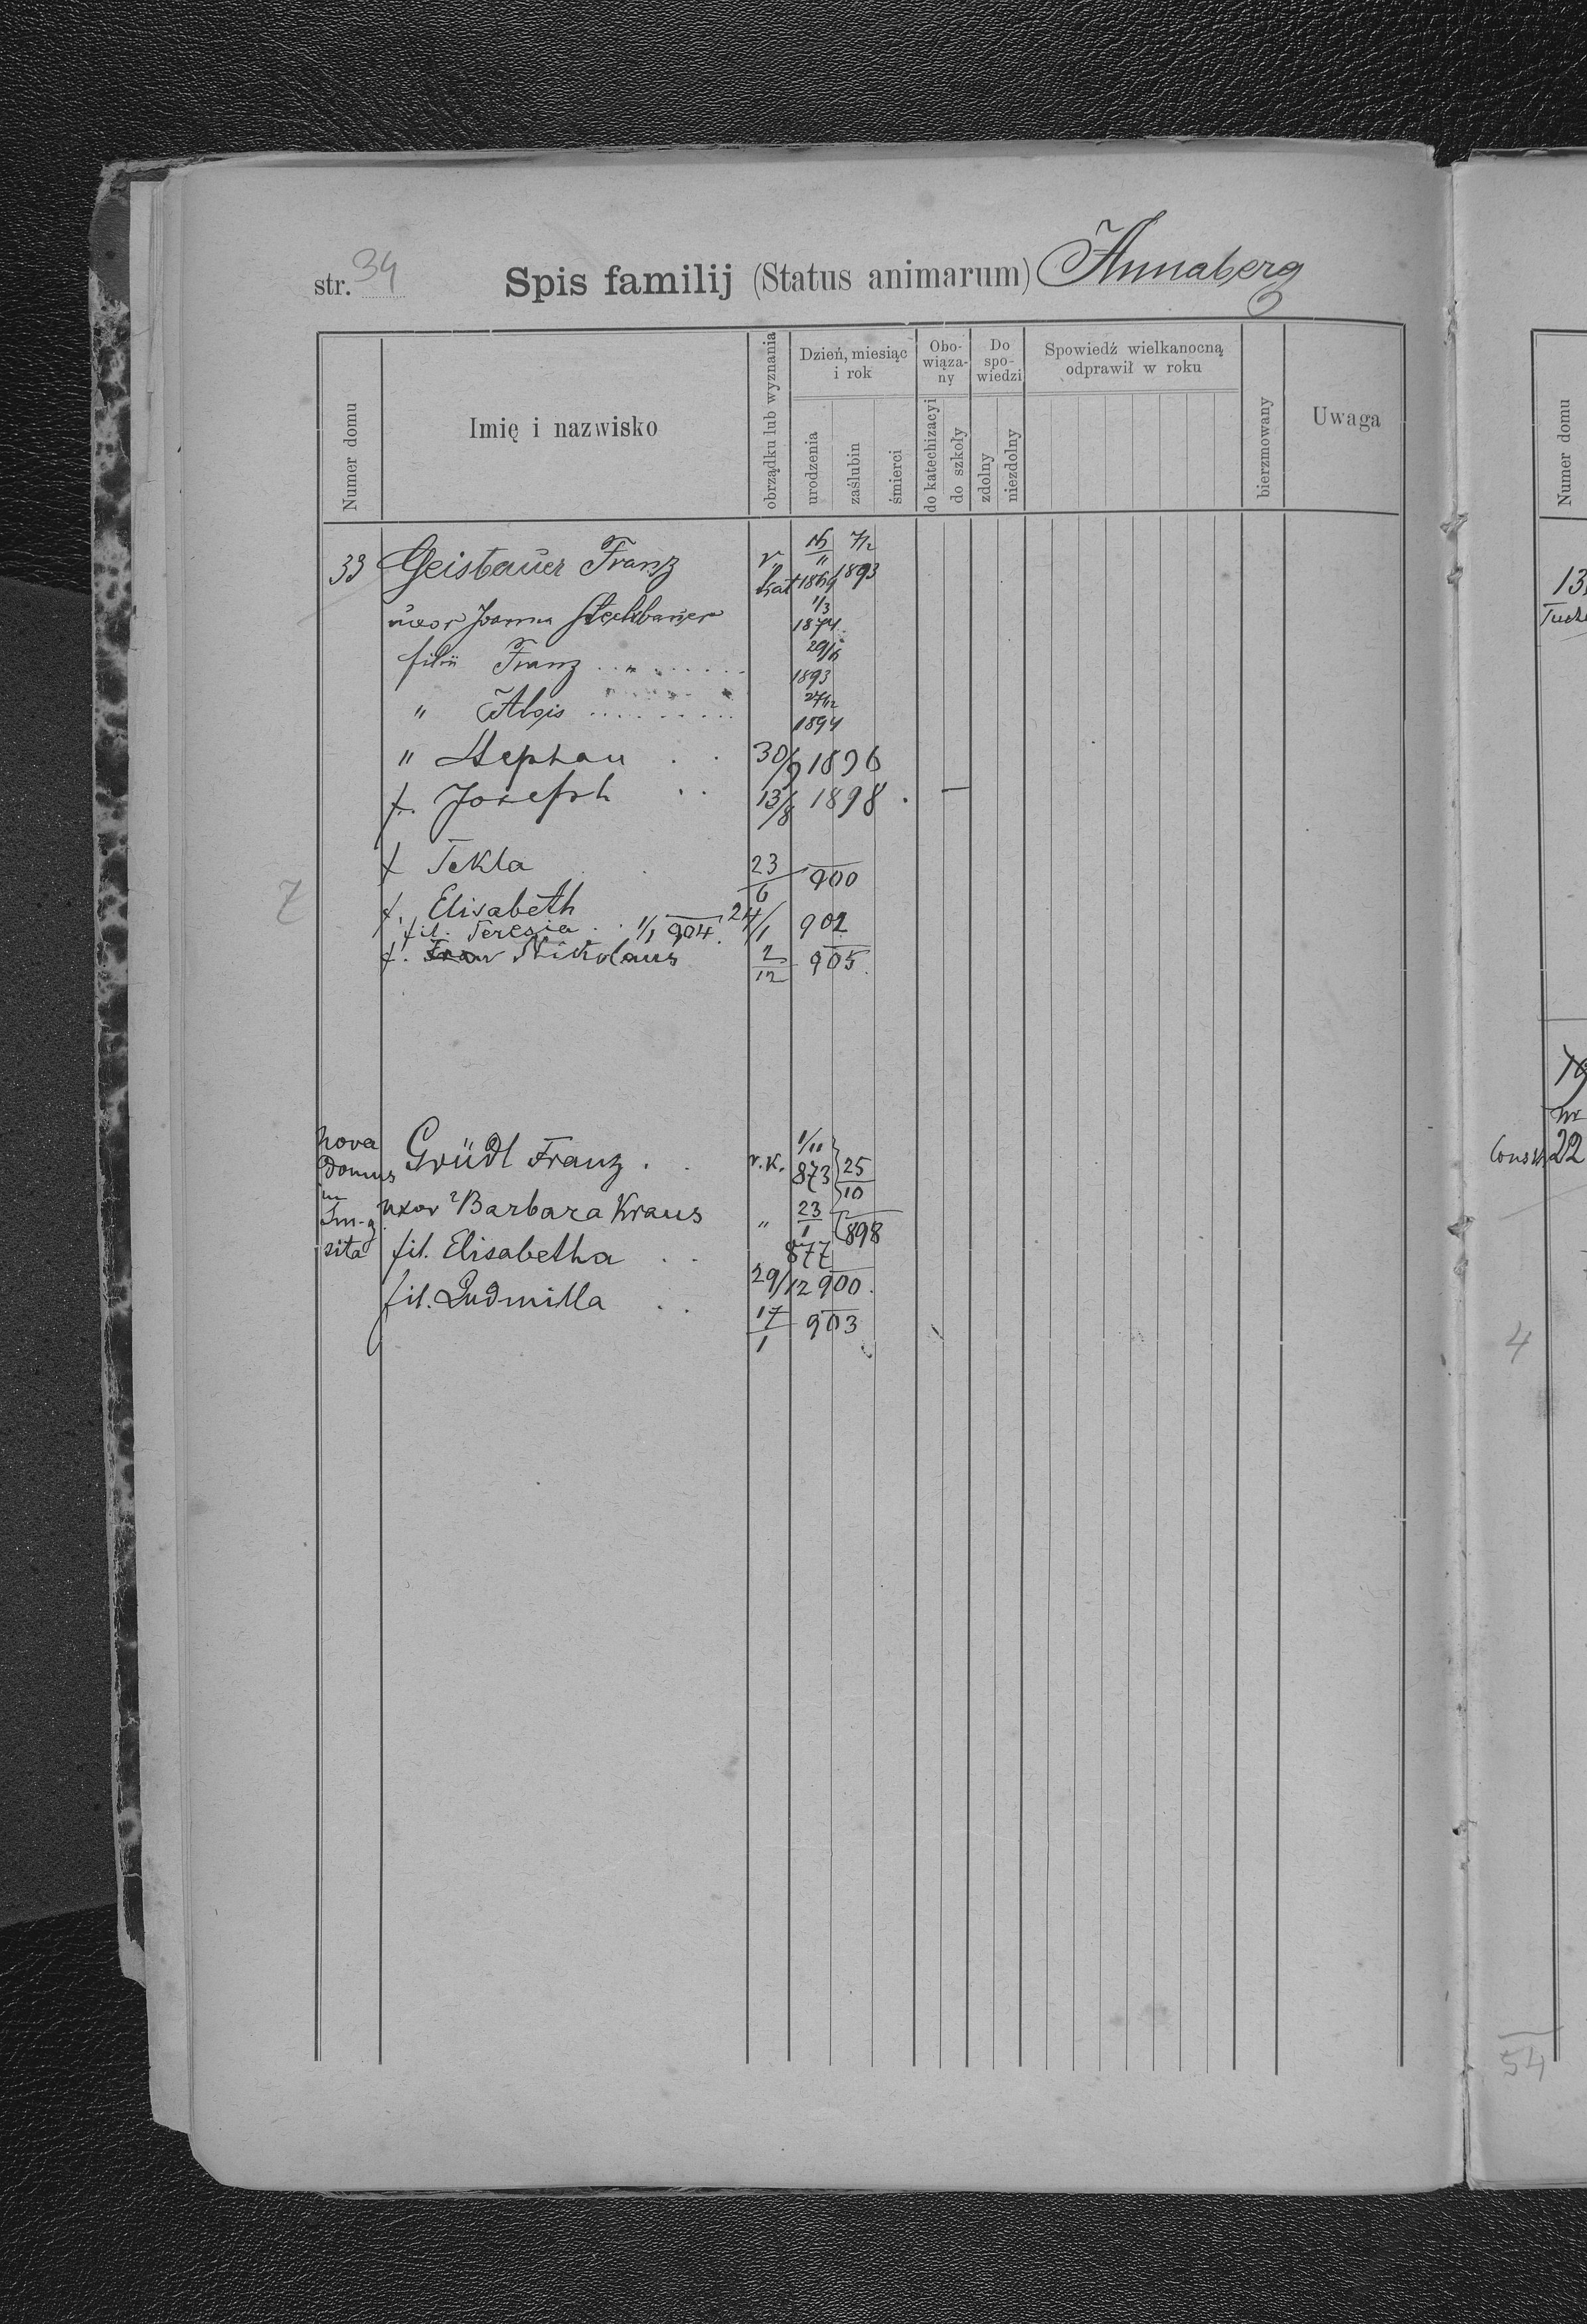 str. 34 Spis familij (Status animarum) Annaberg
Numer domu
Imię i nazwisko
obrządku lub wyznania
Dzień, miesiąc i rok
urodzenia
zaślubin
śmierci
Obo-wiąza-ny
do katechizacyi
do szkoły
Do spo-wiedzi
zdolny
niezdolny
Spowiedź wielkanocną odprawił w roku
bierzmowany
Uwaga
33 Geisbauer Franz r kat 1869 7/12 1893
uxor Joanna 1/3 1874
filii Franz 29/6 1893
" Alois 27/12 1894
" Stephan 30/9 1896
f. Joseph 13/8 1898
f Tekla 23/6 900
f. Elisabeth 24/1 902
fil. Teresia 1/1 904
f. Nikolaus 2/12 905
7
nova domus in
sita
Gründl Franz r.K. 1/11 873 25/10 898
uxor Barbara Kraus " 23/1 877
fil. Elisabetha 29/12 900
fil. Ludmilla 17/1 903
Numer domu
13
19
22
4
54